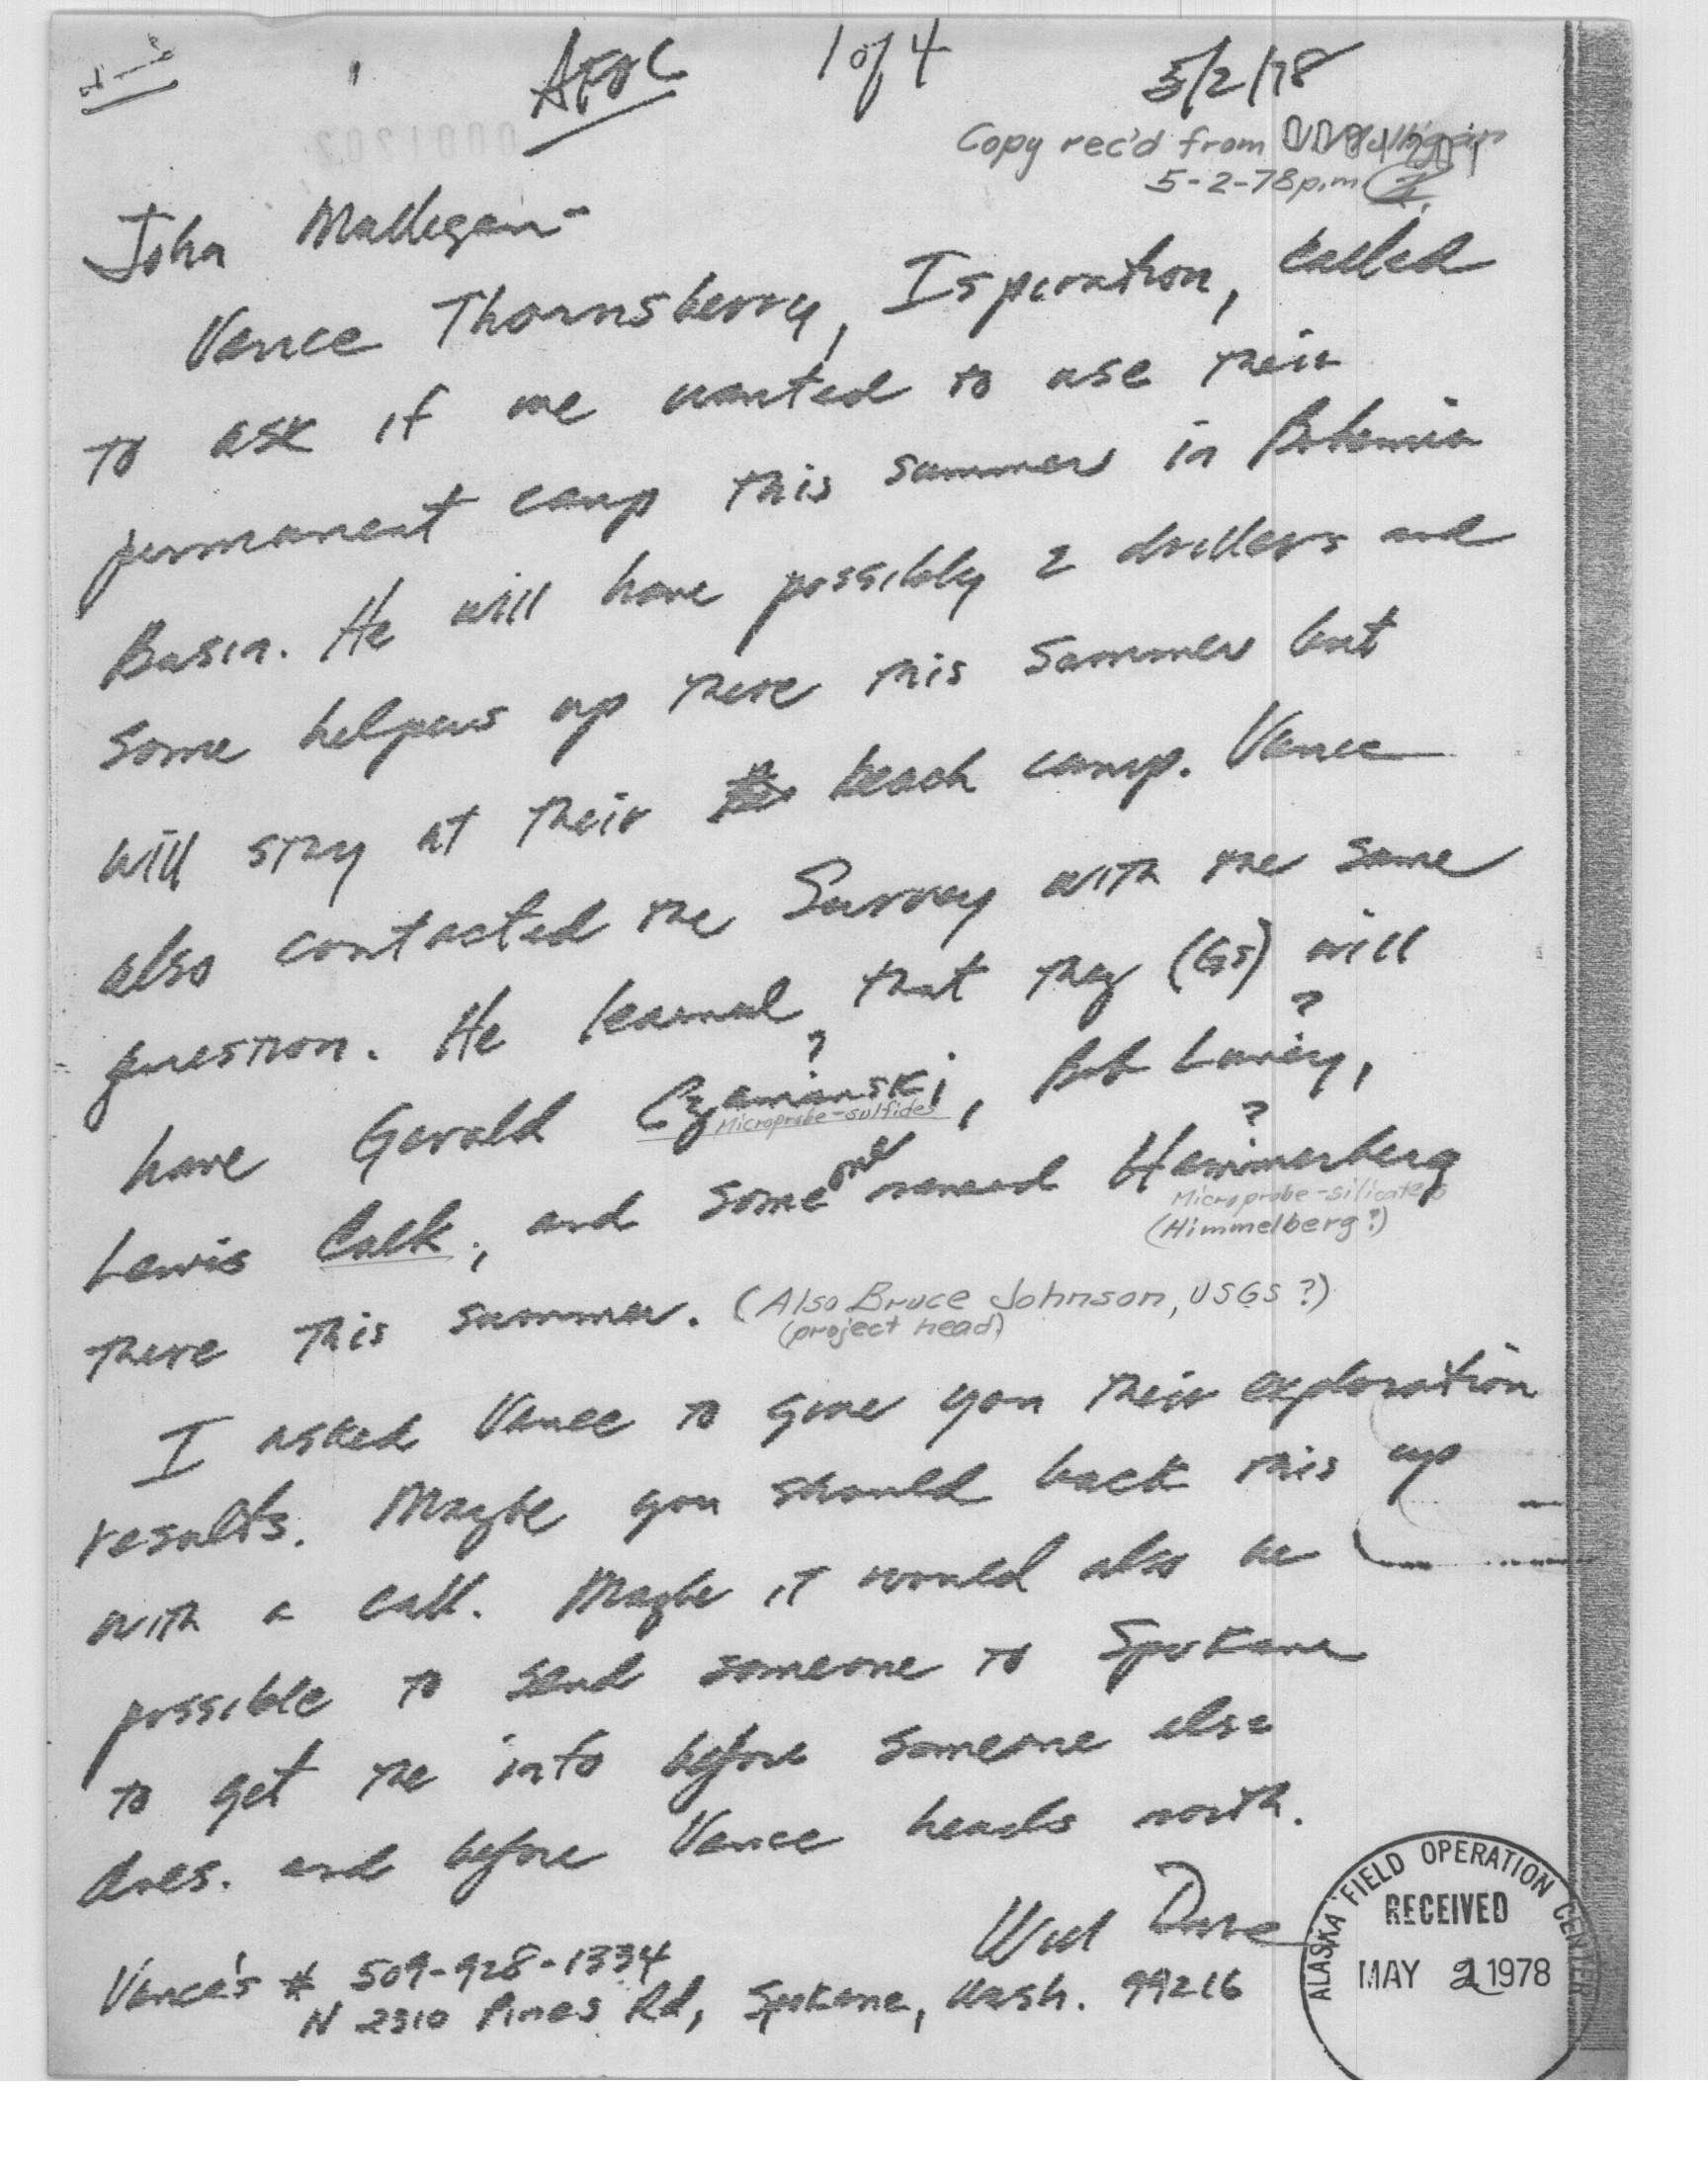 AFOC 1 of 4 5/2/78
Copy rec'd from
5-2-78 p.m.
John Mulligan-
Vance Thornsberry, Ispiration, called
to ask if we wanted to use their
permanent camp this summer in Bohemia
Basin. He will have possibly 2 drillers and
some helpers up there this summer but
will stay at their beach camp. Vance
also contacted the Survey with the same
question. He learned that they (GS) will
? ?
have Gerald Czamanski, Bob Laney,
Microprobe-sulfides
?
Lewis Calk, and some one named Hammerberg
Microprobe-silicates
(Himmelberg?)
there this summer. (Also Bruce Johnson, USGS?)
(project head)
I asked Vance to give you their exploration
results. Maybe you should back this up
with a call. Maybe it would also be
possible to send someone to Spokane
to get the info before someone else
does. and before Vance heads north.
Dave
Vance's # 509-928-1334
N 2310 Pines Rd, Spokane, Wash. 99216
ALASKA FIELD OPERATION CENTER
RECEIVED
MAY 2 1978